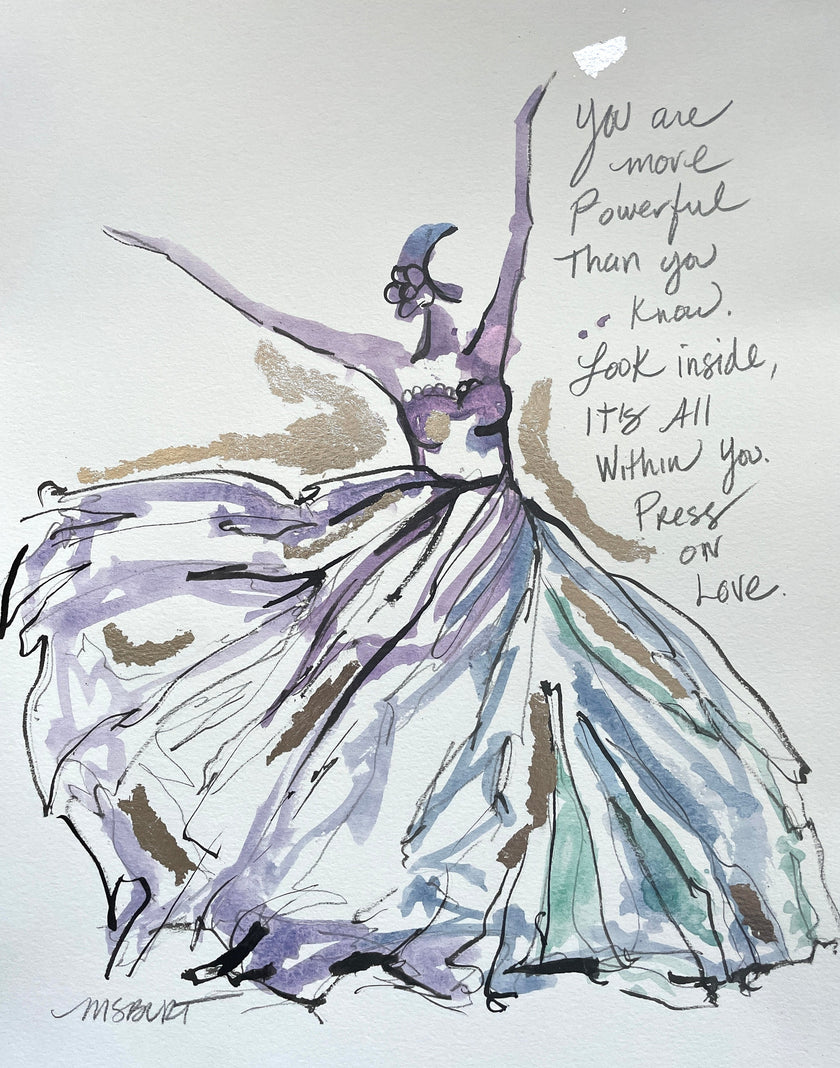 You are
more
Powerful
Than you
Know.
Look inside,
It's All
Within You.
Press
on
Love.
MSBURT